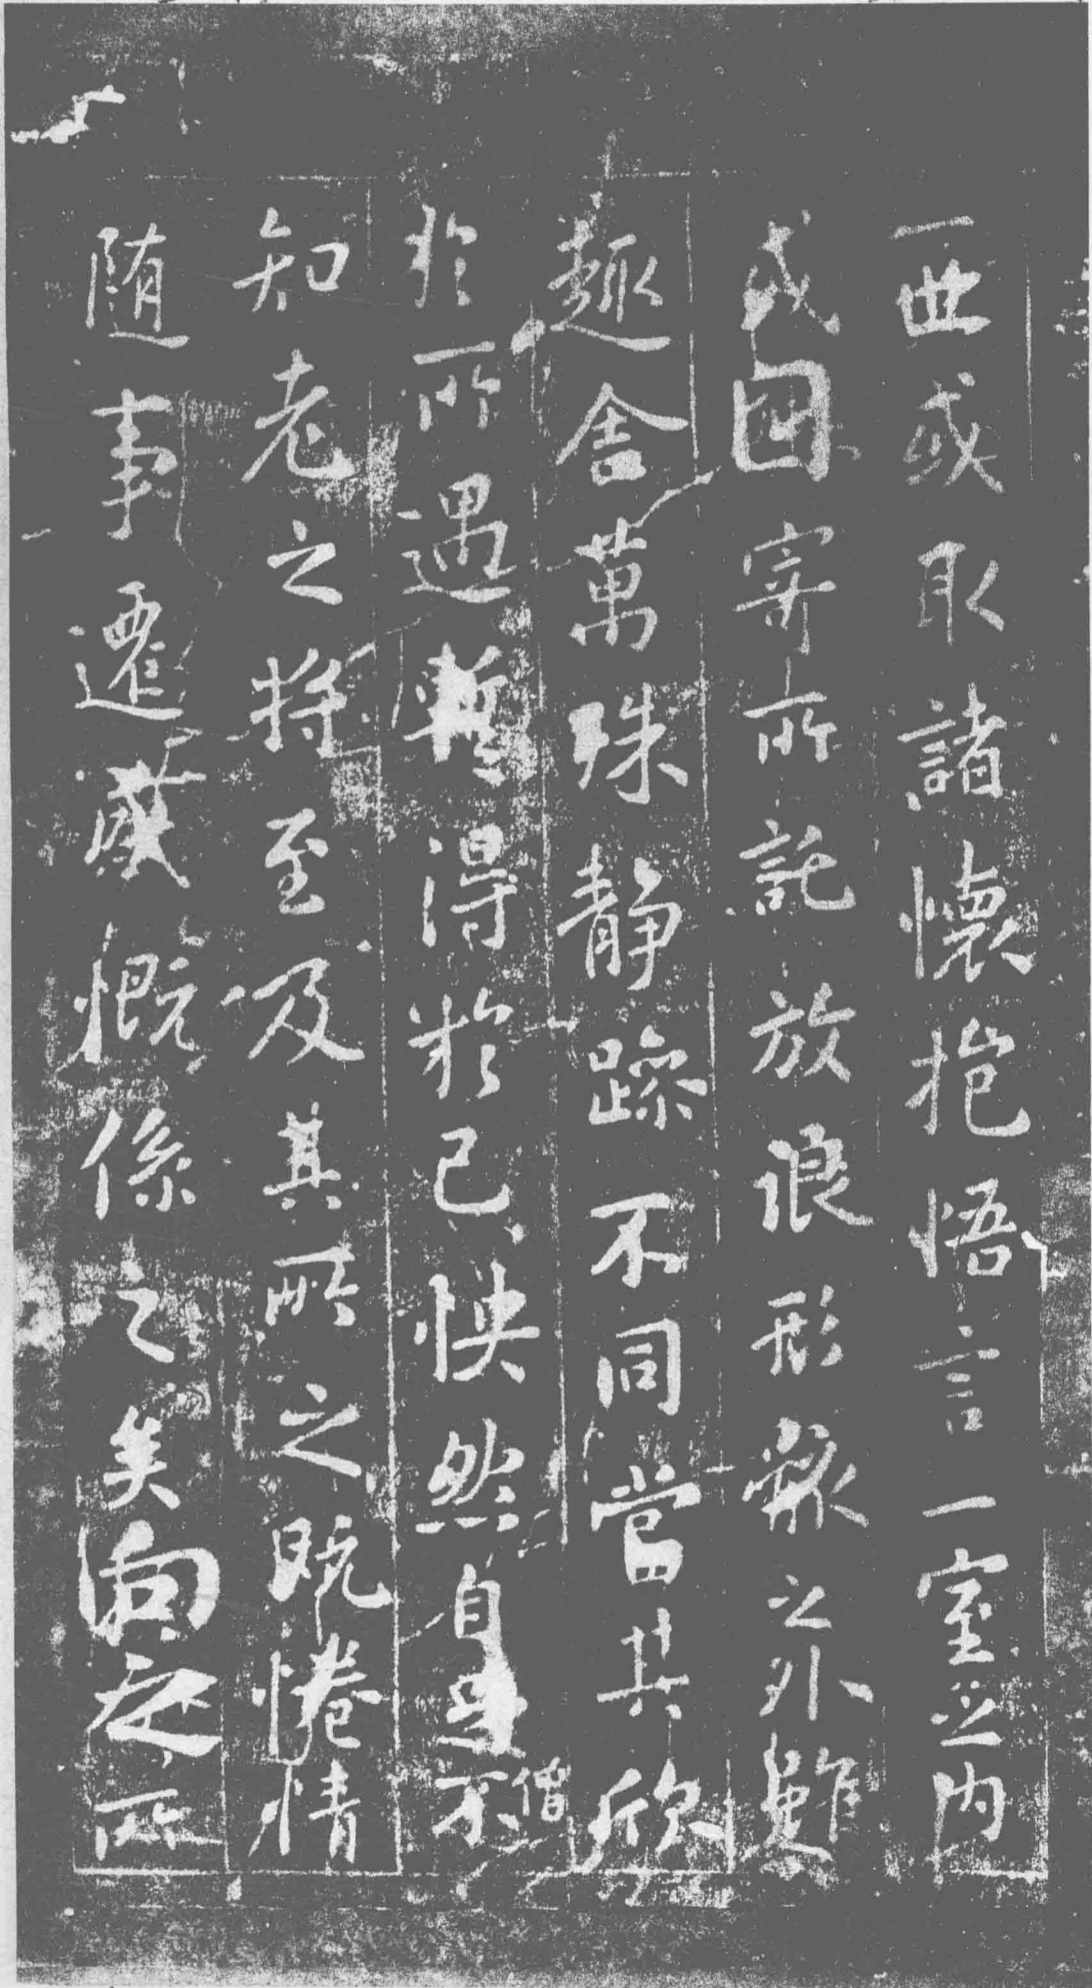 一世或取諸懷抱悟言一室之内
或因寄所託放浪形骸之外雖
趣舍萬殊静躁不同當其欣
於所遇暫得於己怏然自足不
僧
知老之將至及其所之既惓情
随事遷感慨係之矣向之所